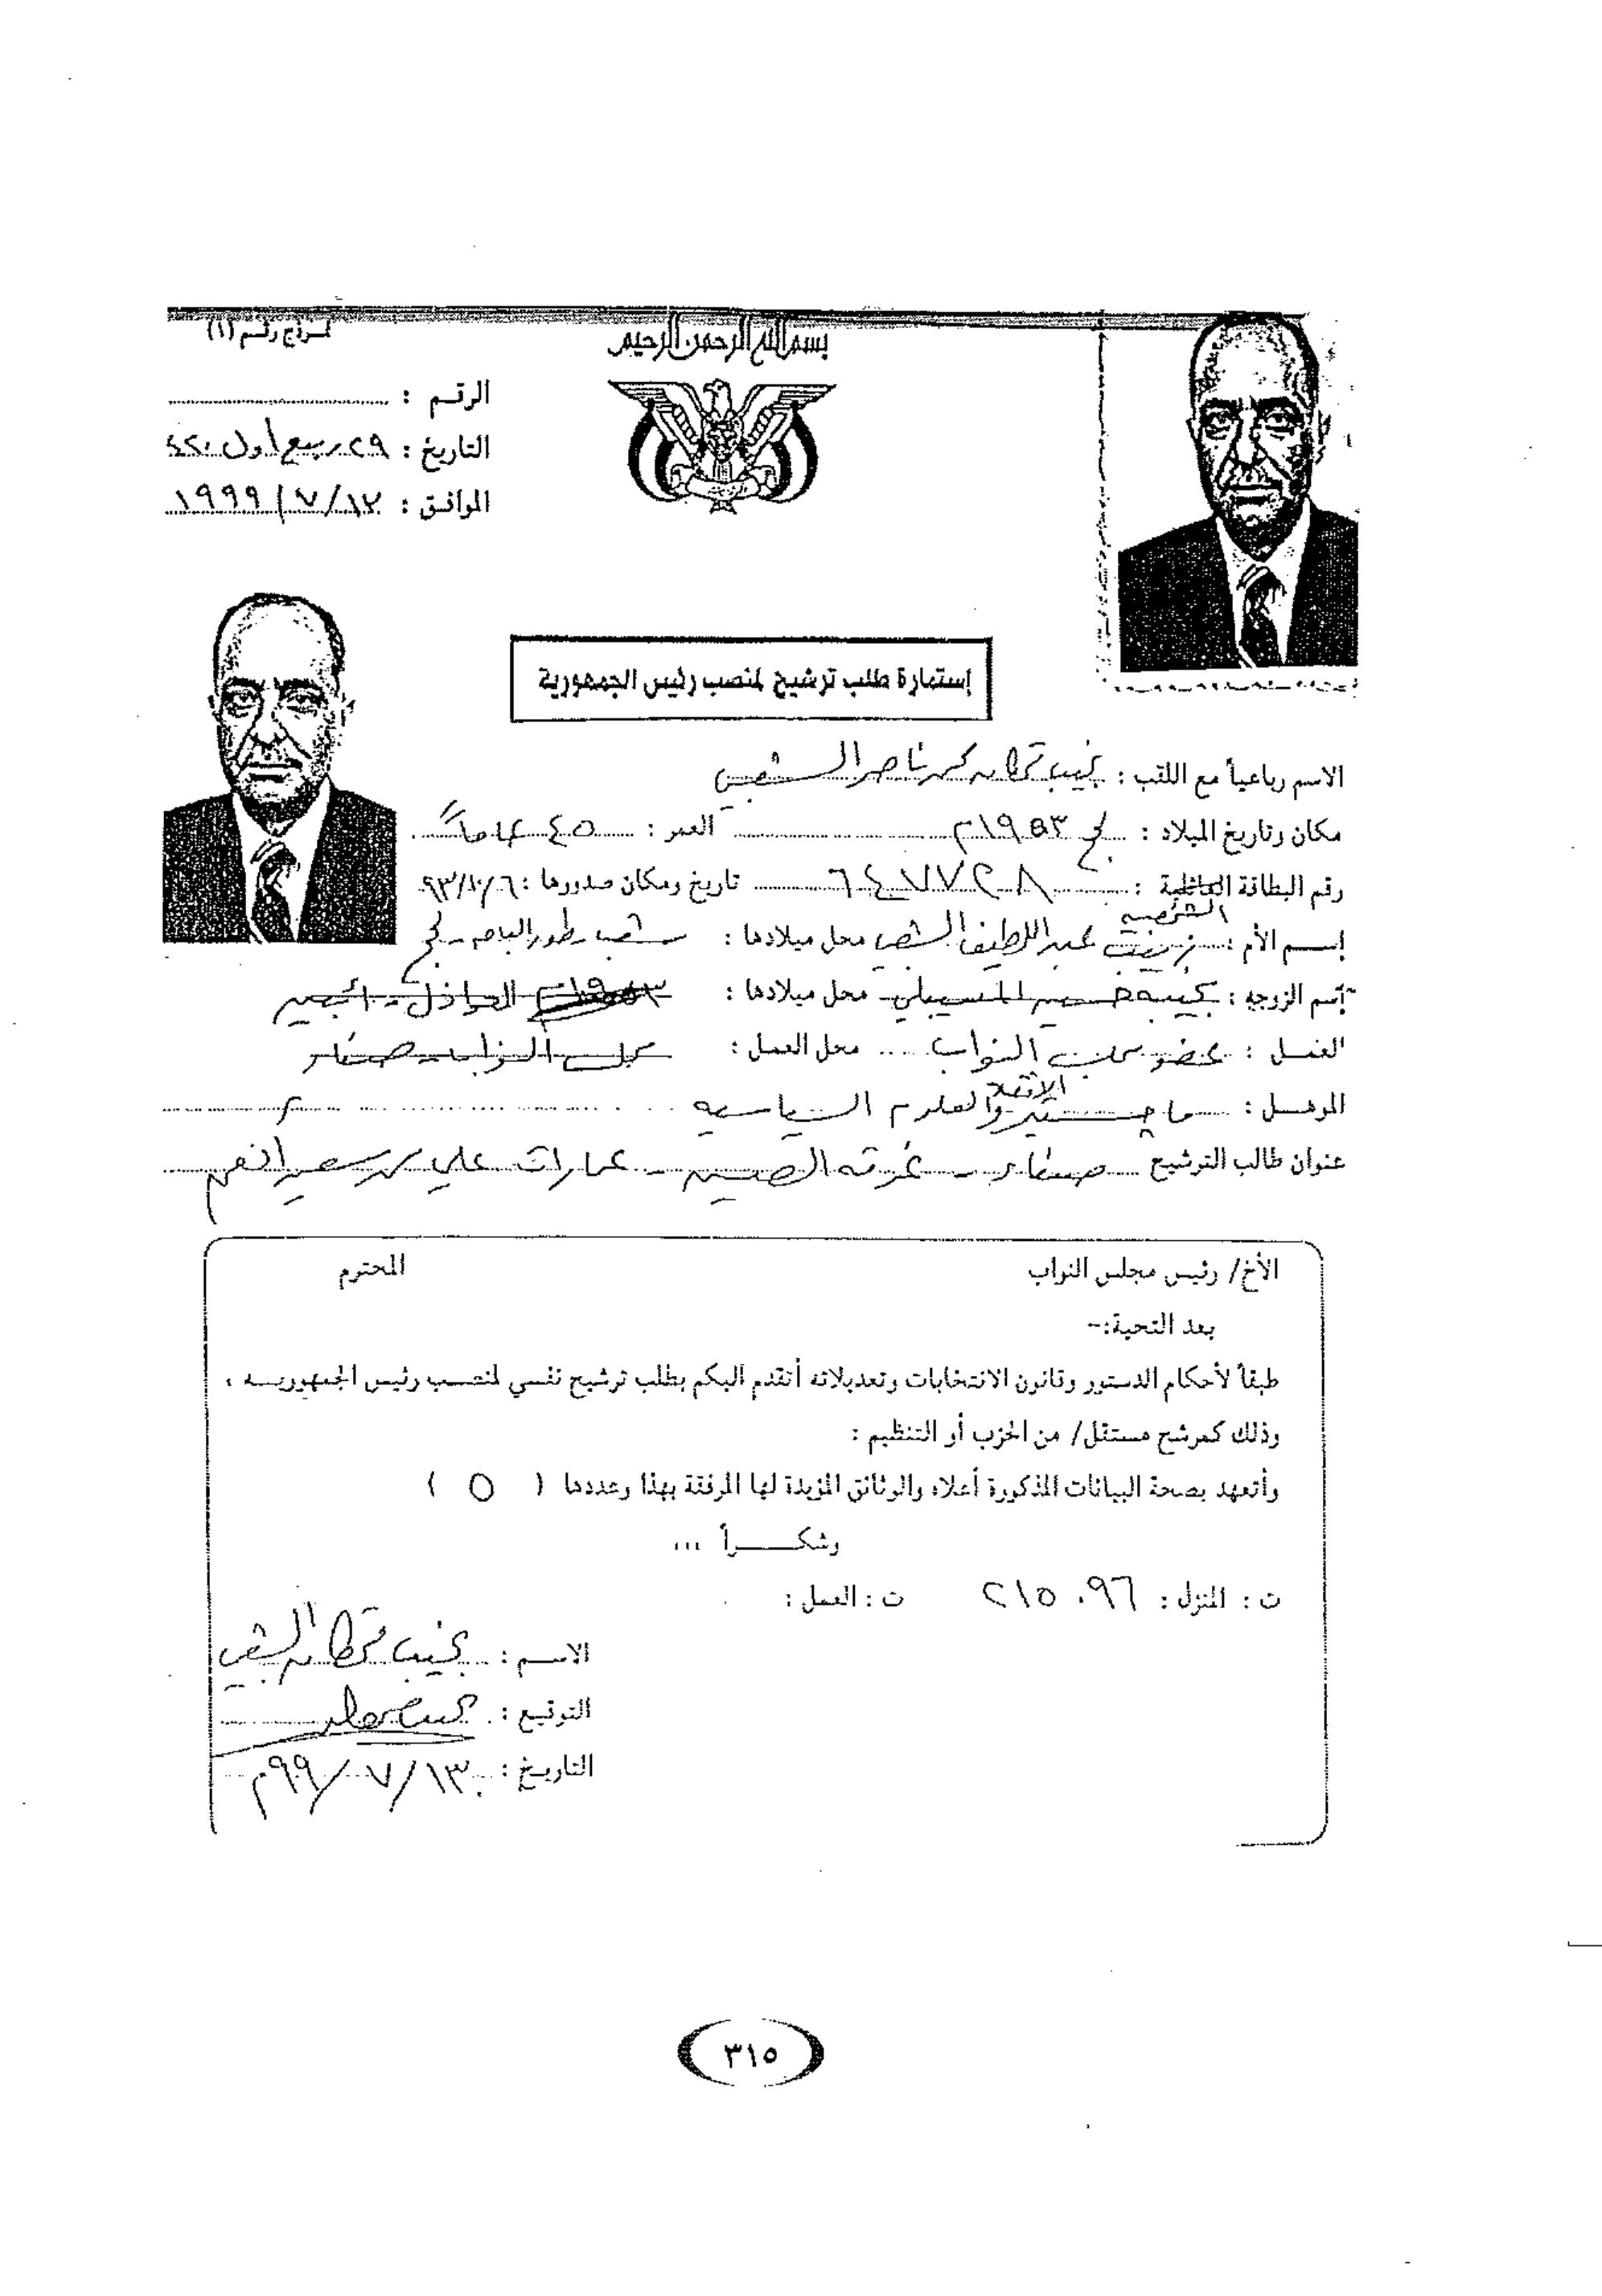 نموذج رقم (١)
بسم الله الرحمن الرحيم
الرقم :
التاريخ : ٢٩ ربيع أول ٤٢٠
الموافق : ١٢ / ٧ / ١٩٩٩
إستمارة طلب ترشيح لمنصب رئيس الجمهورية
الاسم رباعياً مع اللقب : نجيب قحطان محمد ناصر الشعبي
مكان وتاريخ الميلاد : لحج ١٩٥٣م العمر : ٤٥ عاماً
رقم البطاقة العائلية : ٦٤٧٧٢٨ تاريخ ومكان صدورها :
الشخصية
إسم الأم : زينب عبد اللطيف الشعبي محل ميلادها : شعب - طور الباحه - لحج
إسم الزوجه : محل ميلادها :
العمل : عضو مجلس النواب محل العمل : مجلس النواب - صنعاء
المؤهل : ماجستير الاقتصاد والعلوم السياسيه
عنوان طالب الترشيح صنعاء - عمارات علي
الأخ/ رئيس مجلس النواب المحترم
بعد التحية:-
طبقاً لأحكام الدستور وقانون الانتخابات وتعديلاته أتقدم اليكم بطلب ترشيح نفسي لمنصب رئيس الجمهوريه ،
وذلك كمرشح مستقل/ من الحزب أو التنظيم :
وأتعهد بصحة البيانات المذكورة أعلاه والوثائق المؤيدة لها المرفقة بهذا وعددها ( ٥ )
وشكراً ...
ت : المنزل : ٢١٥٠٩٦ ت : العمل :
الاسم : نجيب قحطان الشعبي
التوقيع :
التاريخ : ١٣ / ٧ / ٩٩م
٣١٥